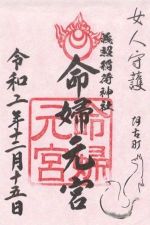 女人守護
義照稲荷神社
命婦元宮
命婦
元宮
令和二年十二月十五日